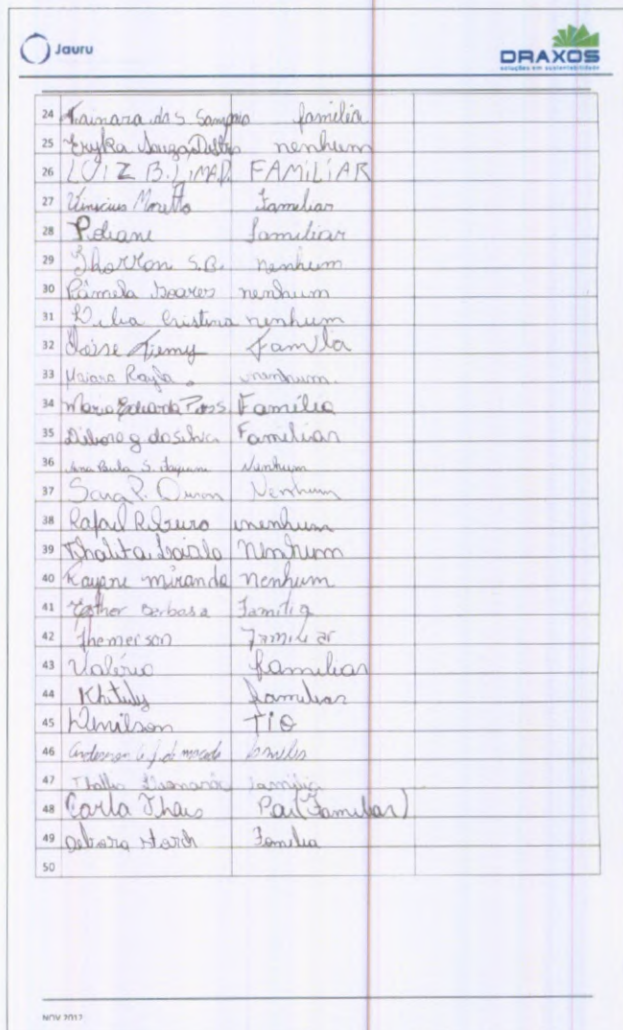 Jauru
DRAXOS
soluções em sustentabilidade
24 Tainara dos S. Sampaio família
25 Eryka Souza nenhum
26 LUIZ B. LIMA FAMILIAR
27 Vinicius Moretto Familiar
28 Poliane familiar
29 Sharron S.B. nenhum
30 Pâmela Soares nenhum
31 Cristina nenhum
32 Família
33 Rayla nenhum.
34 Maria Família
35 Débora g da silva Familiar
36 Ana Paula S. Nenhum
37 Sara P. Nenhum
38 Rafael Ribeiro nenhum
39 Thalita Nenhum
40 Rayane miranda nenhum
41 Esther Barbosa Família
42 Jhemerson Familiar
43 Valério familiar
44 familiar
45 TIO
46 de família
47 família
48 Carla Thais Pai (Familiar)
49 Debora Família
50
NOV 2017